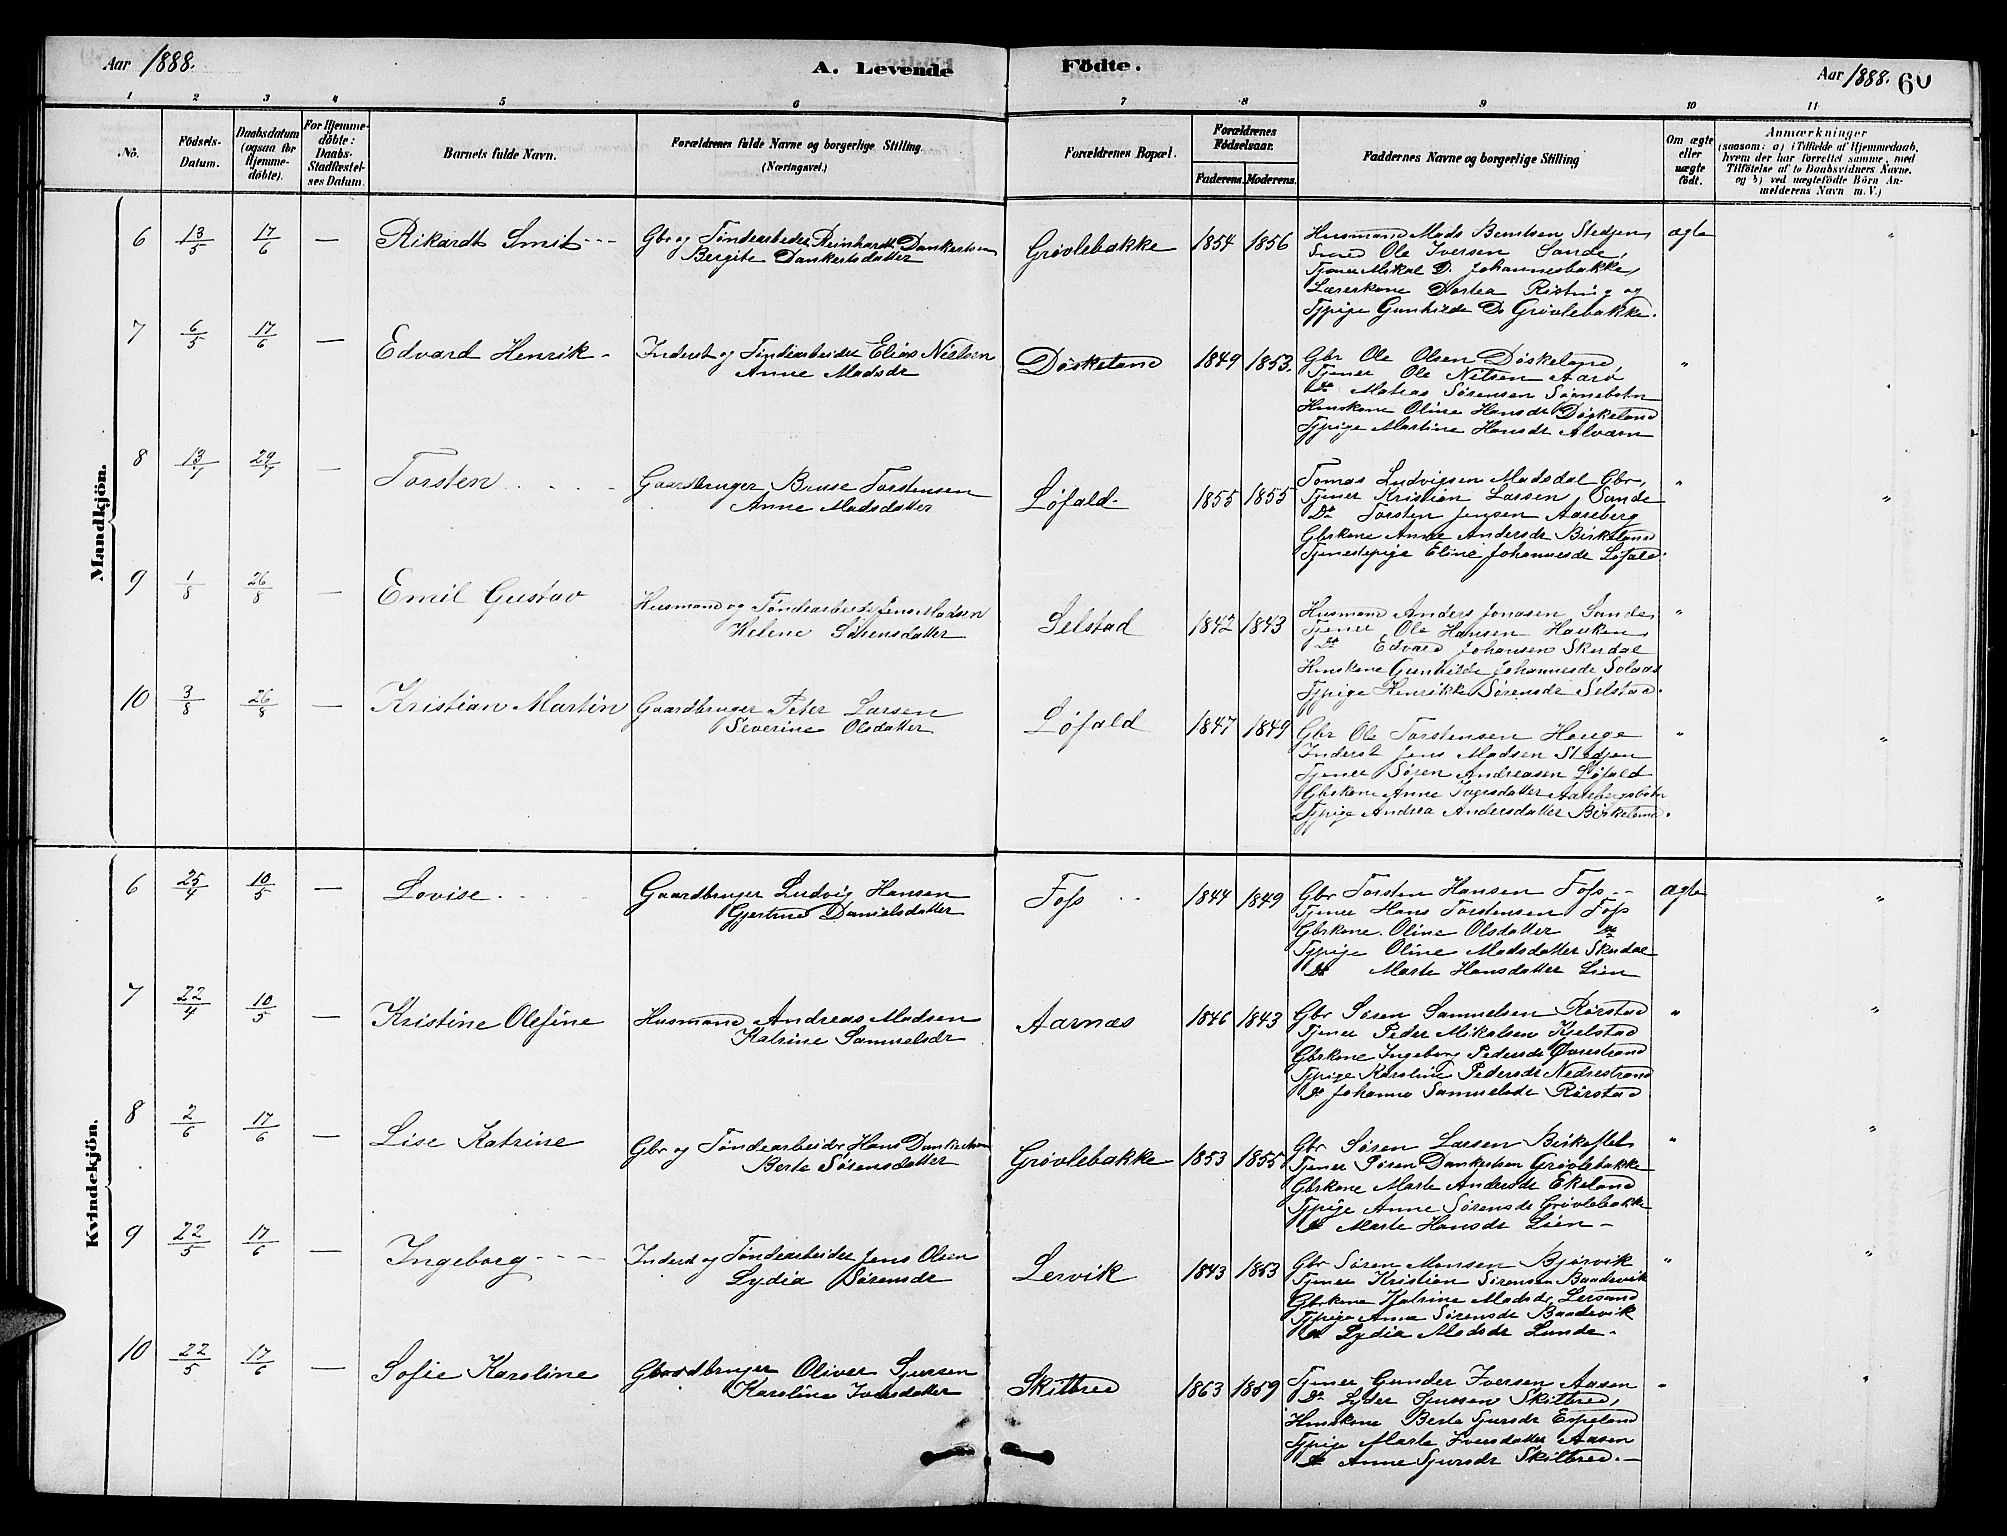 Aar 1888.
A. Levende Födte.
Aar 1888. 60
1 2 3 4 5 6 7 8 9 10 11
No.
Födsels-Datum.
Daabsdatum (ogsaa for Hjemme-döbte).
For Hjemme-döbte: Daabs-Stadfæstel-ses Datum.
Barnets fulde Navn.
Forældrenes fulde Navne og borgerlige Stilling.
(Næringsvei.)
Forældrenes Bopæl.
Forældrenes Födselsaar.
Faderens. Moderens.
Faddernes Navne og borgerlige Stilling
Om ægte eller uægte födt.
Anmærkninger
(saasom: a) i Tilfælde af Hjemmedaab, hvem der har forrettet samme, med Tilföielse af to Daabsvidners Navne. og b) ved uægtefödte Börn An-melderens Navn m. V.)
Mandkjön.
6 13/5 17/6 — Rikardt Smit -- Gbr og Tøndearbeider Reinhardt Dankertsen
Bergite Dankertsdatter
Grøvlebakke 1854 1856
Husmand Mads Bentsen Stedjen,
Smed Ole Iversen Sande,
Tjener Mikal D. Johannesbakke,
Lærerkone Dortea Ristning og
Tjpige Gunhilde Do Grøvlebakke.
ægte "
7 6/5 17/6 — Edvard Henrik - Inderst og Tøndearbeider Elias Nielsen
Anne Madsdr
Døskeland 1849 1853.
Gbr Ole Olsen Døskeland,
Tjener Ole Nilsen Aarø,
Do Matias Sørensen Sørnebotn
Huskone Oline Hansdr Døskeland
Tjpige Martine Hansdr Alværn
"
8 13/7 29/7 — Torsten . . . . Gaardbruger Bruse Torstensen
Anne Madsdatter
Løfald 1855 1855
Tomas Ludvigsen Madsdal Gbr,
Tjener Kristian Larsen, Sande
Do Torsten Jensen Aarberg
Gbskone Anne Andersdr Birkeland
Tjenestepige Eline Johannesdr Løfald.
" "
9 1/8 26/8 — Emil Gustav
Husmand og Tøndearbeider Jens Madsen
Helene Sørensdatter
Selstad 1842 1843
Husmand Anders Jonasen Sande,
Tjener Ole Hansen Hauken,
Do Edvard Johansen Skudal
Huskone Gunhilde Johannesdr
Tjpige Henrikke Sørensdr Selstad.
"
10 3/8 26/8 — Kristian Martin Gaardbruger Peter Larsen
Severine Olsdatter
Løfald 1847 1849
Gbr Ole Torstensen Hauge
Inderst Jens Madsen Stedjen
Tjener Søren Andreasen Løfald
Gbskone Anne Iversdatter Aarbergsbotn
Tjpige Andrea Andersdatter Birkeland.
" "
Kvindekjön.
6 25/4 10/5 — Lovise . . . . Gaardbruger Ludvig Hansen
Gjertrud Danielsdatter
Foss . . 1844 1849
Gbr Torsten Hansen Foss --
Tjener Hans Torstensen Foss
Gbskone Oline Olsdatter Do
Tjpige Oline Madsdatter Skudal
Do Marte Hansdatter Lien
ægte "
7 22/4 10/5 — Kristine Olefine Husmand Andreas Madsen
Katrine Samuelsdr
Aarnæs 1846 1843
Gbr Søren Samuelsen Rørstad
Tjener Peder Mikalsen Kjelstad
Gbrkone Ingeborg Pedersdr Øvrestrand
Tjpige Karoline Pedersdr Nedrestrand
Do Johanne Samuelsdr Rørstad
" "
8 2/6 17/6 — Lise Katrine
Gbr og Tøndearbeider Hans Dankertsen
Berte Sørensdatter
Grøvlebakke 1853 1855
Gbr Søren Larsen Birkeflet,
Tjener Søren Dankertsen Grøvlebakke
Gbskone Marte Andersdr Ekeland
Tjpige Anne Sørensdr Grøvlebakke
Do Marte Hansdr Lien -
" "
9 22/5 17/6 — Ingeborg - - - Inderst og Tøndearbeider Jens Olsen
Lydia Sørensdr
Lervik 1843 1853
Gbr Søren Monsen Bjørvik
Tjener Kristian Sørensen Baadevik
Gbrkone Katrine Madsdr Lersund
Tjpige Anne Sørensdr Baadevik
Do Lydia Madsdr Lunde -
" "
10 22/5 17/6 — Sofie Karoline Gaardbruger Oliver Sjursen
Karoline Iversdatter
Skilbred 1863 1859
Tjener Gunder Iversen Aasen
Do Lyder Sjursen Skilbred,
Huskone Berte Sjursdr Espeland
Tjpige Marte Iversdatter Aasen
Do Anne Sjursdr Skilbred. -
" "